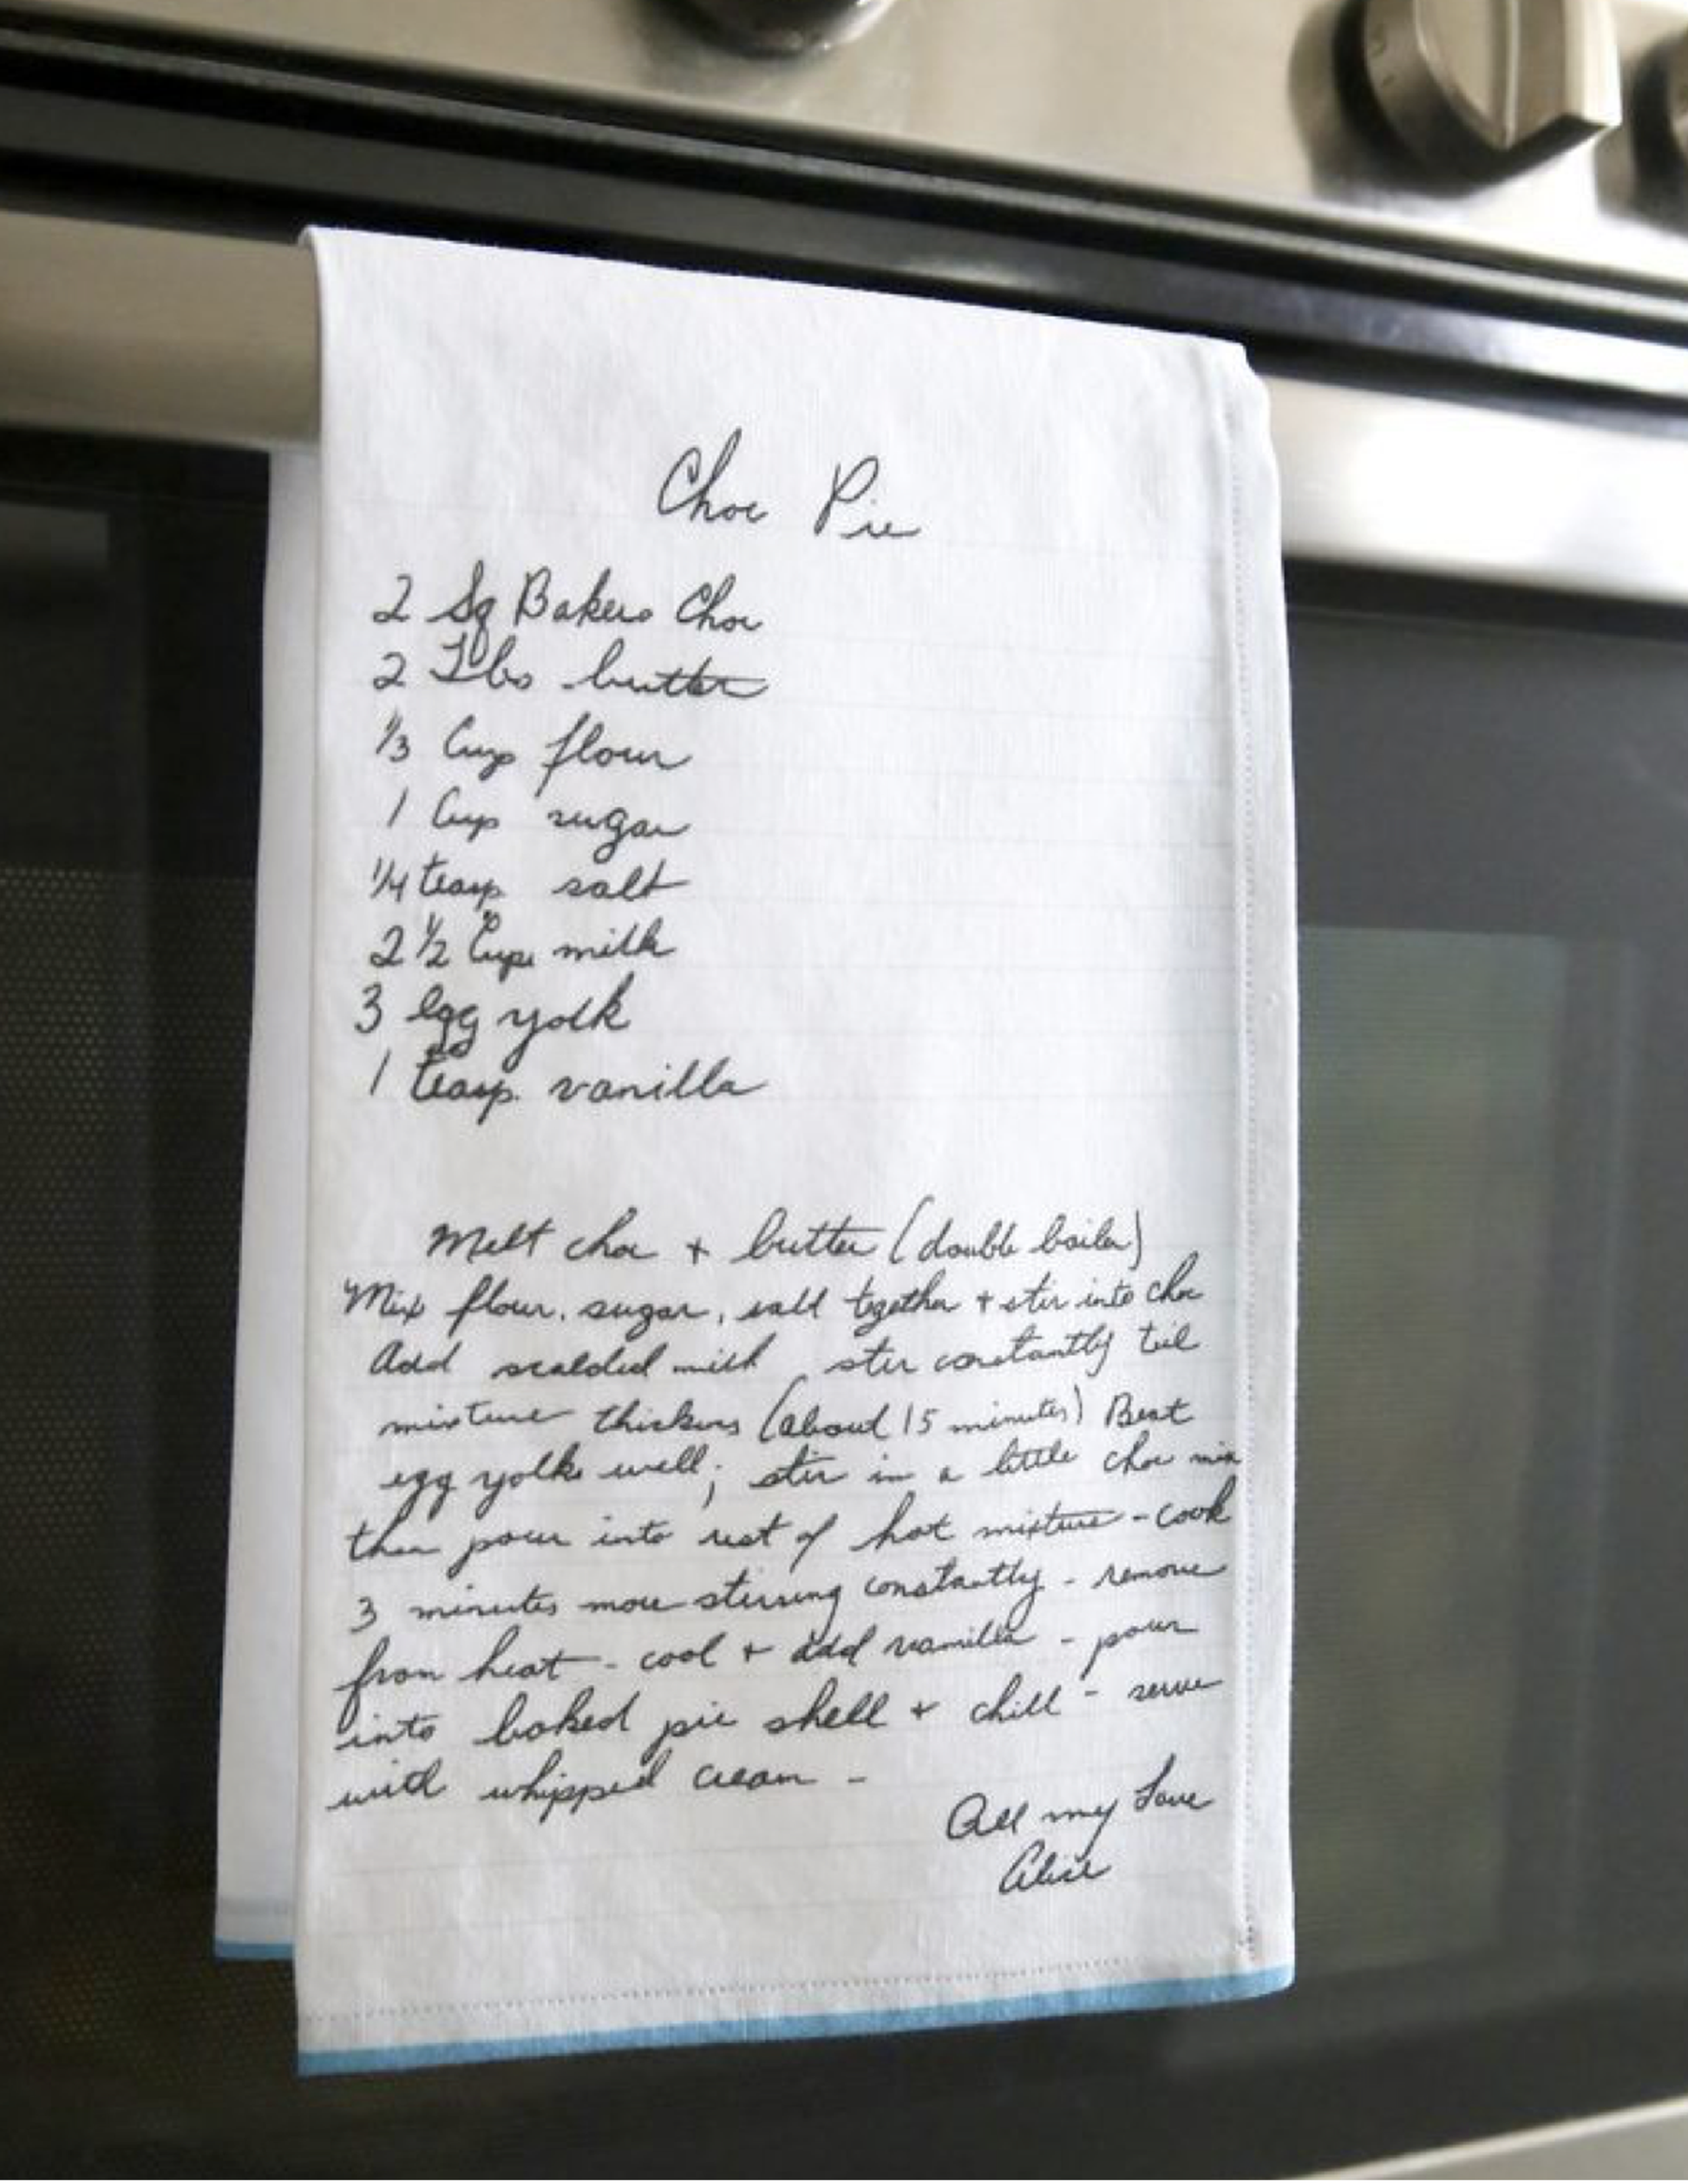 Choc Pie
2 Sq Bakers Choc
2 Tbs butter
1/3 Cup flour
1 Cup sugar
1/4 teasp salt
2 1/2 Cups milk
3 egg yolk
1 teasp. vanilla
Melt choc + butter (double boiler)
Mix flour, sugar, salt together + stir into choc
Add scalded milk, stir constantly till
mixture thickens (about 15 minutes) Beat
egg yolks well; stir in a little choc mix
then pour into rest of hot mixture - cook
3 minutes more stirring constantly - remove
from heat - cool + add vanilla - pour
into baked pie shell + chill - serve
with whipped cream -
All my Love
Alice